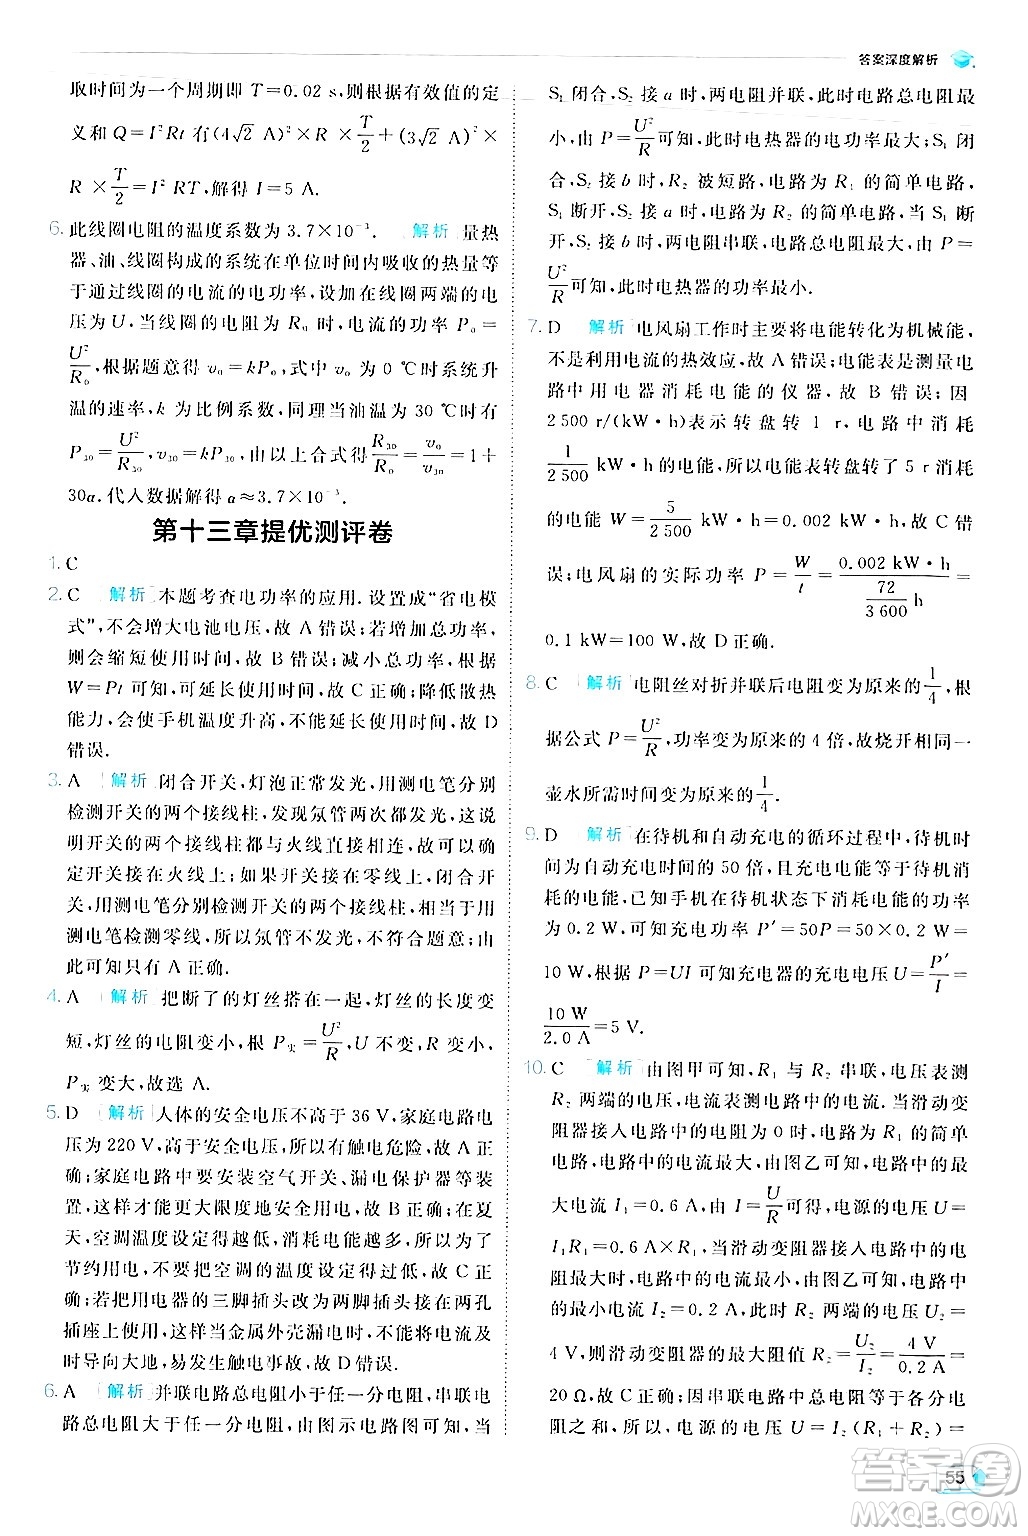 答案深度解析
取时间为一个周期即 T=0.02 s,则根据有效值的定
义和 Q=I²Rt 有(4√2 A)²×R×T/2+(3√2 A)²×
R×T/2=I²RT,解得 I=5 A.
6. 此线圈电阻的温度系数为 3.7×10⁻³. 解析 量热
器、油、线圈构成的系统在单位时间内吸收的热量等
于通过线圈的电流的电功率,设加在线圈两端的电
压为 U,当线圈的电阻为 R₀ 时,电流的功率 P₀=
U²/R₀,根据题意 v₀=kP₀,式中 v₀ 为 0 ℃时系统升
温的速率,k 为比例系数,同理当油温为 30 ℃时有
P₃₀=U²/R₃₀,v₃₀=kP₃₀,由以上合式得R₃₀/R₀=v₀/v₃₀=1+
30α.代入数据解得 α≈3.7×10⁻³.
第十三章提优测评卷
1. C
2. C 解析 本题考查电功率的应用.设置成“省电模
式”,不会增大电池电压,故 A 错误;若增大总功率,
则会缩短使用时间,故 B 错误;减小总功率,根据
W=Pt 可知,可延长使用时间,故 C 正确;降低散热
能力,会使手机温度升高,不能延长使用时间,故 D
错误.
3. A 解析 闭合开关,灯泡正常发光,用测电笔分别
检测开关的两个接线柱,发现氖管两次都发光,这说
明开关的两个接线柱都与火线直接相连,由此可确
定开关接在火线上;如果开关接在零线上,闭合开
关,用测电笔分别检测开关的两个接线柱时,相当于
测电笔检测零线,所以氖管不发光,不符合题意,由
此可知只有 A 正确.
4. A 解析 把断了的灯丝搭在一起,灯丝的长度变
短,灯丝的电阻变小,根据 P实=U²/R,U 不变,R 变小,
P实 变大,故选 A.
5. D 解析 人体的安全电压不高于 36 V,家庭电路电
压为 220 V,高于安全电压,所以有触电危险,故 A
错误;家庭电路中要安装空气开关、漏电保护器等装
置,这样才能更大限度地安全用电,故 B 错误;在夏
天,空调温度设定得越低,消耗电能越多,所以为了
节约用电,不要把空调的温度设定得太低,故 C 错
误;若将用电器的三脚插头改为两脚插头接在两孔
插座上使用,这样当金属外壳漏电时,不能将电流及
时导向大地,易发生触电事故,故 D 错误.
6. A 解析 并联电路总电阻小于任一分电阻,串联电
路总电阻大于任一分电阻,由图示电路图可知,当
S₁ 闭合、S₂ 接 a 时,两电阻并联,此时电路总电阻最
小,由 P=U²/R可知,此时电热器的功率最大;S₁ 闭
合、S₂ 接 b 时,R₂ 被短路,电路为 R₁ 的简单电路;
S₁ 断开、S₂ 接 a 时,电路为 R₂ 的简单电路,当 S₁ 断
开、S₂ 接 b 时,两电阻串联,电路总电阻最大,由 P=
U²/R可知,此时电热器的功率最小.
7. D 解析 电风扇工作时主要将电能转化为机械能,
不是利用电流的热效应,故 A 错误;电能表是测量电
路中用电器消耗电能的仪器,故 B 错误;因
2 500 r/(kW·h)表示转盘转 1 r,电路中消耗
1/2 500 kW·h 的电能,所以电能表转盘转了 5 r 消耗
的电能 W=5/2 500 kW·h=0.002 kW·h,故 C 错
误;电风扇的实际功率 P=W/t=0.002 kW·h/(72/3 600)h=
0.1 kW=100 W,故 D 正确.
8. C 解析 电阻丝对折并联后电阻变为原来的1/4,根
据公式 P=U²/R,功率变为原来的 4 倍,故烧开相同一
壶水所需时间变为原来的1/4.
9. D 解析 在待机和自动充电的循环过程中,待机时
间为自动充电时间的 50 倍,且充电电能等于待机消
耗的电能,已知手机在待机状态下消耗电能的功率
为 0.2 W,可知充电功率 P′=50P=50×0.2 W=
10 W,根据 P=UI 可知充电器的充电电压 U=P′/I=
10 W/2.0 A=5 V.
10. C 解析 由图甲可知,R₁ 与 R₂ 串联,电压表测
R₂ 两端的电压,电流表测电路中的电流.当滑动变
阻器接入电路中的电阻为 0 时,电路为 R₁ 的简单
电路,电路中的电流最大,由图乙可知,电路中的最
大电流 I₁=0.6 A,由 I=U/R可得,电源的电压 U=
I₁R₁=0.6 A×R₁;当滑动变阻器接入电路中的电
阻最大时,电路中的电流最小,由图乙可知,电路中
的最小电流 I₂=0.2 A,此时 R₂ 两端的电压 U₂=
4 V,则滑动变阻器的最大阻值 R₂=U₂/I₂=4 V/0.2 A=
20 Ω;因串联电路中总电阻等于各分电
阻之和,所以,电源的电压 U=I₂(R₁+R₂)=
55
答案圈
MXQE.COM